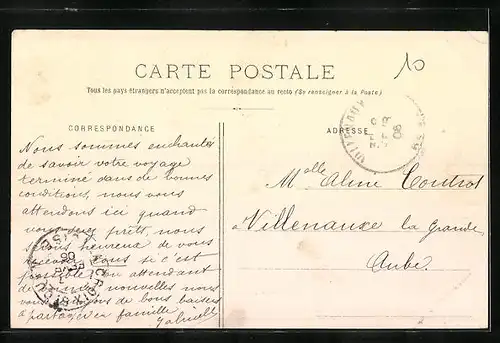 CARTE POSTALE
Tous les pays étrangers n'acceptent pas la correspondance au recto (Se renseigner à la Poste)
10
CORRESPONDANCE
ADRESSE
Nous sommes enchantés
de savoir votre voyage
terminé dans de bonnes
conditions, nous vous
attendons ici quand
vous prêts, nous
serons heureux de vous
si c'est
possible. En attendant
de nouvelles nous
vous de bons baisers
à partager en famille
Gabrielle
Melle Aline
à Villenauxe la Grande
Aube